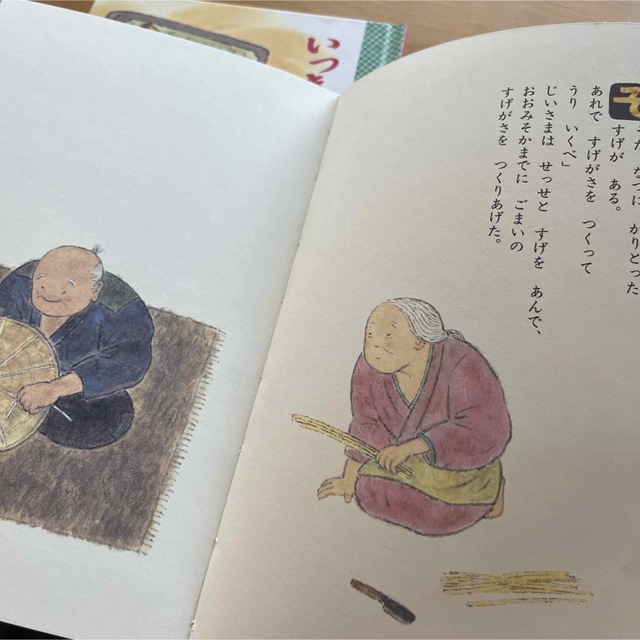 た なつに かりとった
すげが ある。
あれで すげがさを つくって
うり いくべ」
じいさまは せっせと すげを あんで、
おおみそかまでに ごまいの
すげがさを つくりあげた。
いつ